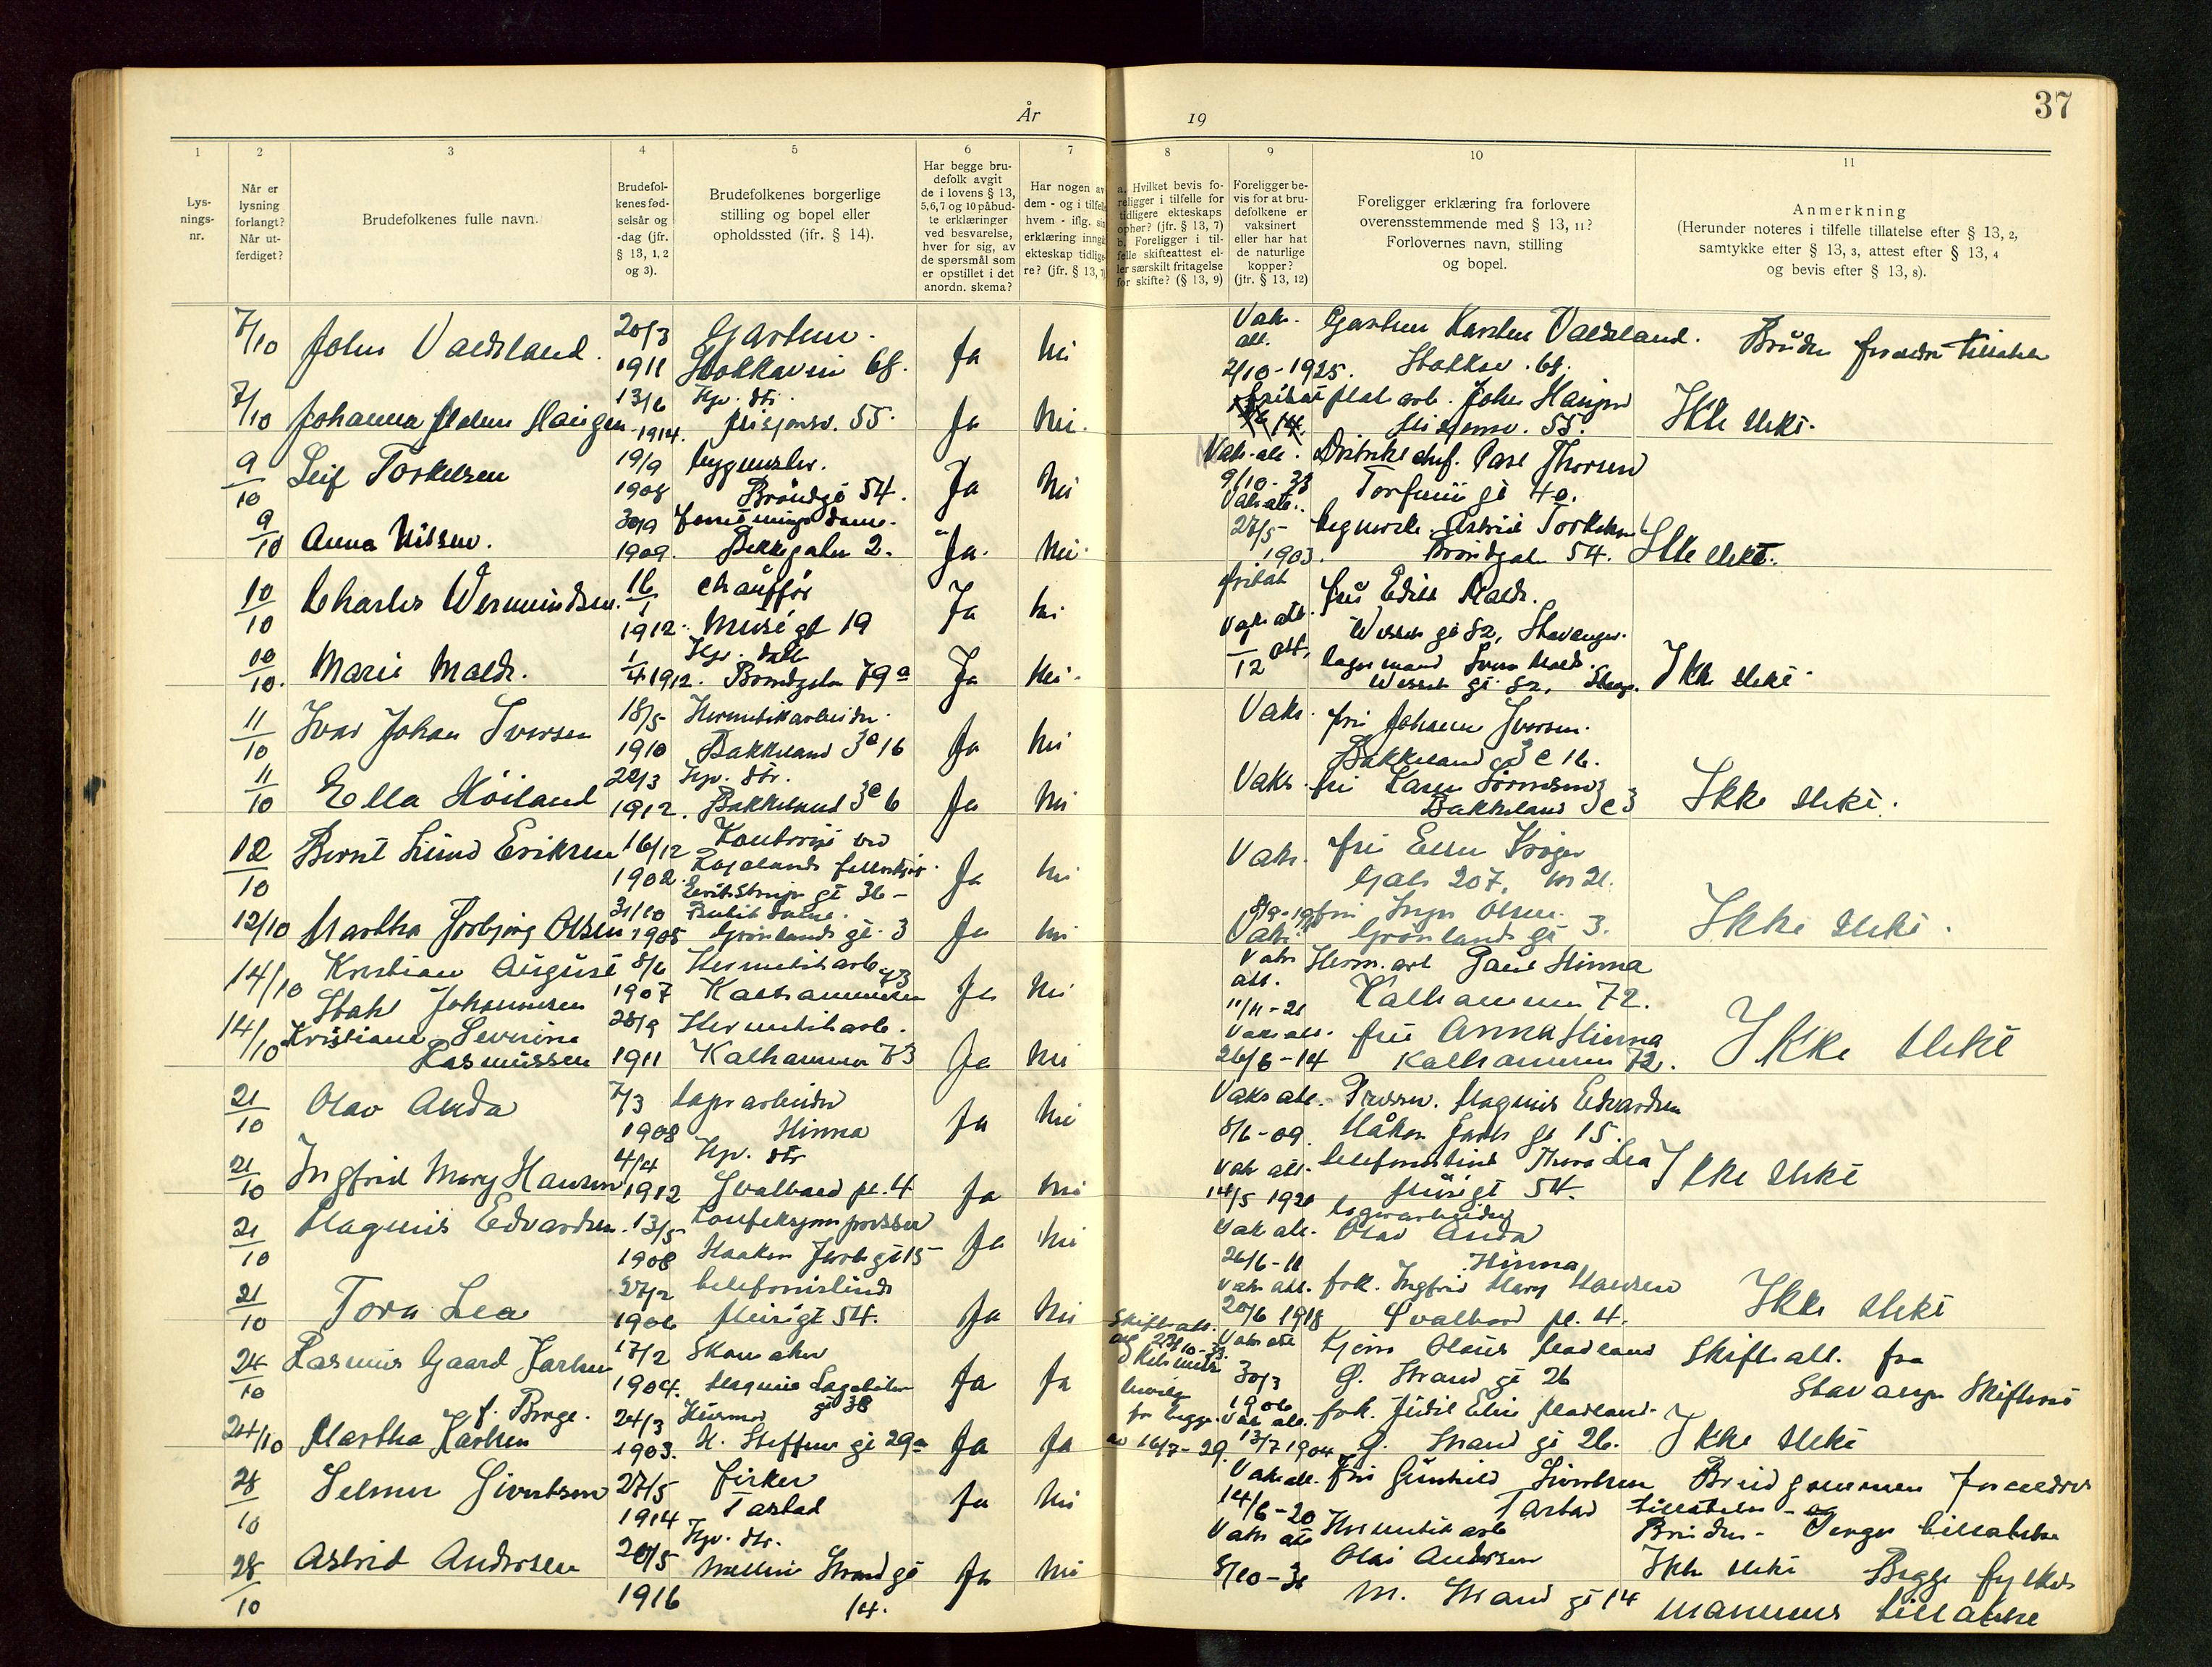 År 19
37
1
2
3
4
5
6
7
8
9
10
11
Lys-
nings-
nr.
Når er
lysning
forlangt?
Når ut-
ferdiget?
Brudefolkenes fulle navn.
Brudefol-
kenes fød-
selsår og
-dag (jfr.
§ 13, 1, 2
og 3).
Brudefolkenes borgerlige
stilling og bopel eller
opholdssted (jfr. § 14).
Har begge bru-
defolk avgit
de i lovens § 13,
5, 6, 7 og 10 påbud-
te erklæringer
ved besvarelse,
hver for sig, av
de spørsmål som
er opstillet i det
anordn. skema?
Har nogen av
dem - og i tilfelle
hvem - iflg. sin
erklæring inngå
ekteskap tidlige-
re? (jfr. § 13, 7)
a. Hvilket bevis fo-
religger i tilfelle for
tidligere ekteskaps
ophør? (jfr. § 13, 7)
b. Foreligger i til-
felle skifteattest el-
ler særskilt fritagelse
for skifte? (§ 13, 9)
Foreligger be-
vis for at bru-
defolkene er
vaksinert
eller har hat
de naturlige
kopper?
(jfr. § 13, 12)
Foreligger erklæring fra forlovere
overensstemmende med § 13, 11?
Forlovernes navn, stilling
og bopel.
Anmerkning
(Herunder noteres i tilfelle tillatelse efter § 13, 2,
samtykke efter § 13, 3, attest efter § 13, 4
og bevis efter § 13, 8).
7/10 John Vadsland. 20/3 1911 Gartner. 68. Ja Nei Vaks. att. 2/10-1925. Gartner Karsten Vadsland. 68.
7/10 Johanna Malene Haugen 13/6 1914. Hjv. dtr. Misjonsv. 55. Ja Nei. John Haugen Misjonsv. 55. Ikke slekt.
9/10 Leif Torkelsen 19/9 1908 bygmester. Brøndgt 54. Ja Nei Vaks. att. 9/10-33 Thorsen 4a.
9/10 Anna Nilsen. 30/9 1909. forretningsdame. Bekkegaten 2. Ja. Nei. Vaks att. 27/5 1903. Astrid Torkelsen Brøndgaten 54. Ikke slekt.
10/10 Charles Wermundsen. 16/1 1912. chauffør Muségt 19 Ja Nei fritat fru Edith Malde. Wessels gt 82, Stavanger.
10/10. Marie Malde. 1/4 1912. Hjv. datter Brøndgaten 79a Ja Nei. Vaks att. lagermand Malde. Wessels gt. 82, Stavgr. Ikke slekt.
11/10 Ivar Johan Iversen 18/5 1910 Hermetikarbeider. Bakkeland 3c 16 Ja Nei Vaks. fru Johanne Iversen. Bakkeland 3c 16.
11/10 Ella Höiland 22/3 1912. Hjv. dtr. Bakkeland 3c 6 Ja Nei Vaks. fru Bakkeland 3c 3 Ikke slekt.
12/10 Bernt Lund Eriksen 16/12 1902. Kontorist ved Rogalands 36 Ja Nei Vaks. fru Ellen Krøger 207,
12/10 Martha Torbjørg Olsen 31/10 1905 Butikdame. Grønlands gt. 3 Ja Nei Vaks. fru Inger Olsen. Grønlands gt 3. Ikke slekt.
14/10 Kristian August Stahl Johannesen 8/6 1907 Hermetikarb. Kalhammeren 73 Ja Nei Vaks att. 11/11-21 Herm. arb Paul Hinna Kalhammeren 72.
14/10 Kristiane Severine Rasmussen 28/9 1911 Hermetikarb. Kalhammeren 73 Ja Nei Vaks att. 26/6-14 fru Anna Hinna Kalhammeren 72. Ikke slekt
21/10 Olav Anda 7/3 1908 Lagerarbeider Hinna Ja Nei Vaks att. 8/6-09. Presser. Magnus Edvardsen Håkon Jarls gt 15.
21/10 Ingfrid Mary Hansen 4/4 1912 Hjv. dtr Svalbard pl. 4 Ja Nei Vaks att. 14/5 1921 telefonistinde Thora Lea Musegt 54. Ikke slekt
21/10 Magnus Edvardsen. 13/5 1908 Konfeksjons presser Haakon Jarls gt 15 Ja Nei Vaks att. 26/6-11 lagerarbeider Olav Anda Hinna
21/10 Tora Lea 27/2 1906 telefonistinde Musegt 54. Ja Nei Vaks att. 20/6 1918 frk. Ingfrid Mary Hansen Svalbard pl. 4. Ikke slekt
24/10 Rasmus Gaard Karlsen 17/2 1904. Skomaker Magnus Lagabøters gt 38 Ja Ja Skifteatt. Vaks att 30/3 1906 Olaus Madland Ø. Strand gt 26 Skifteatt. fra Stavanger Skifterett
24/10 Martha Karlsen f. Borge. 24/3 1903. Husmor H. Steffens gt 29a Ja Ja for begge av 16/7-29. Vaks att. 13/7 1904 frk. Judit Elin Madland. Ø. Strand gt 26. Ikke slekt
28/10 Selmer Sivertsen 27/5 1914 fisker Tastad Ja Nei Vaks att. 14/6-20 Fru Gunhild Sivertsen Tastad Brudgommen foreldres tillatelse - og Brudens - Verges tillatelse
28/10 Astrid Andersen 20/5 1916 Hjv. dtr. Mellem Strand gt 14. Ja Nei Vaks att 8/10-31 Hermetikarb Olai Andersen M. Strand gt 14 Ikke slekt Begge fylkesmannens tillatelse